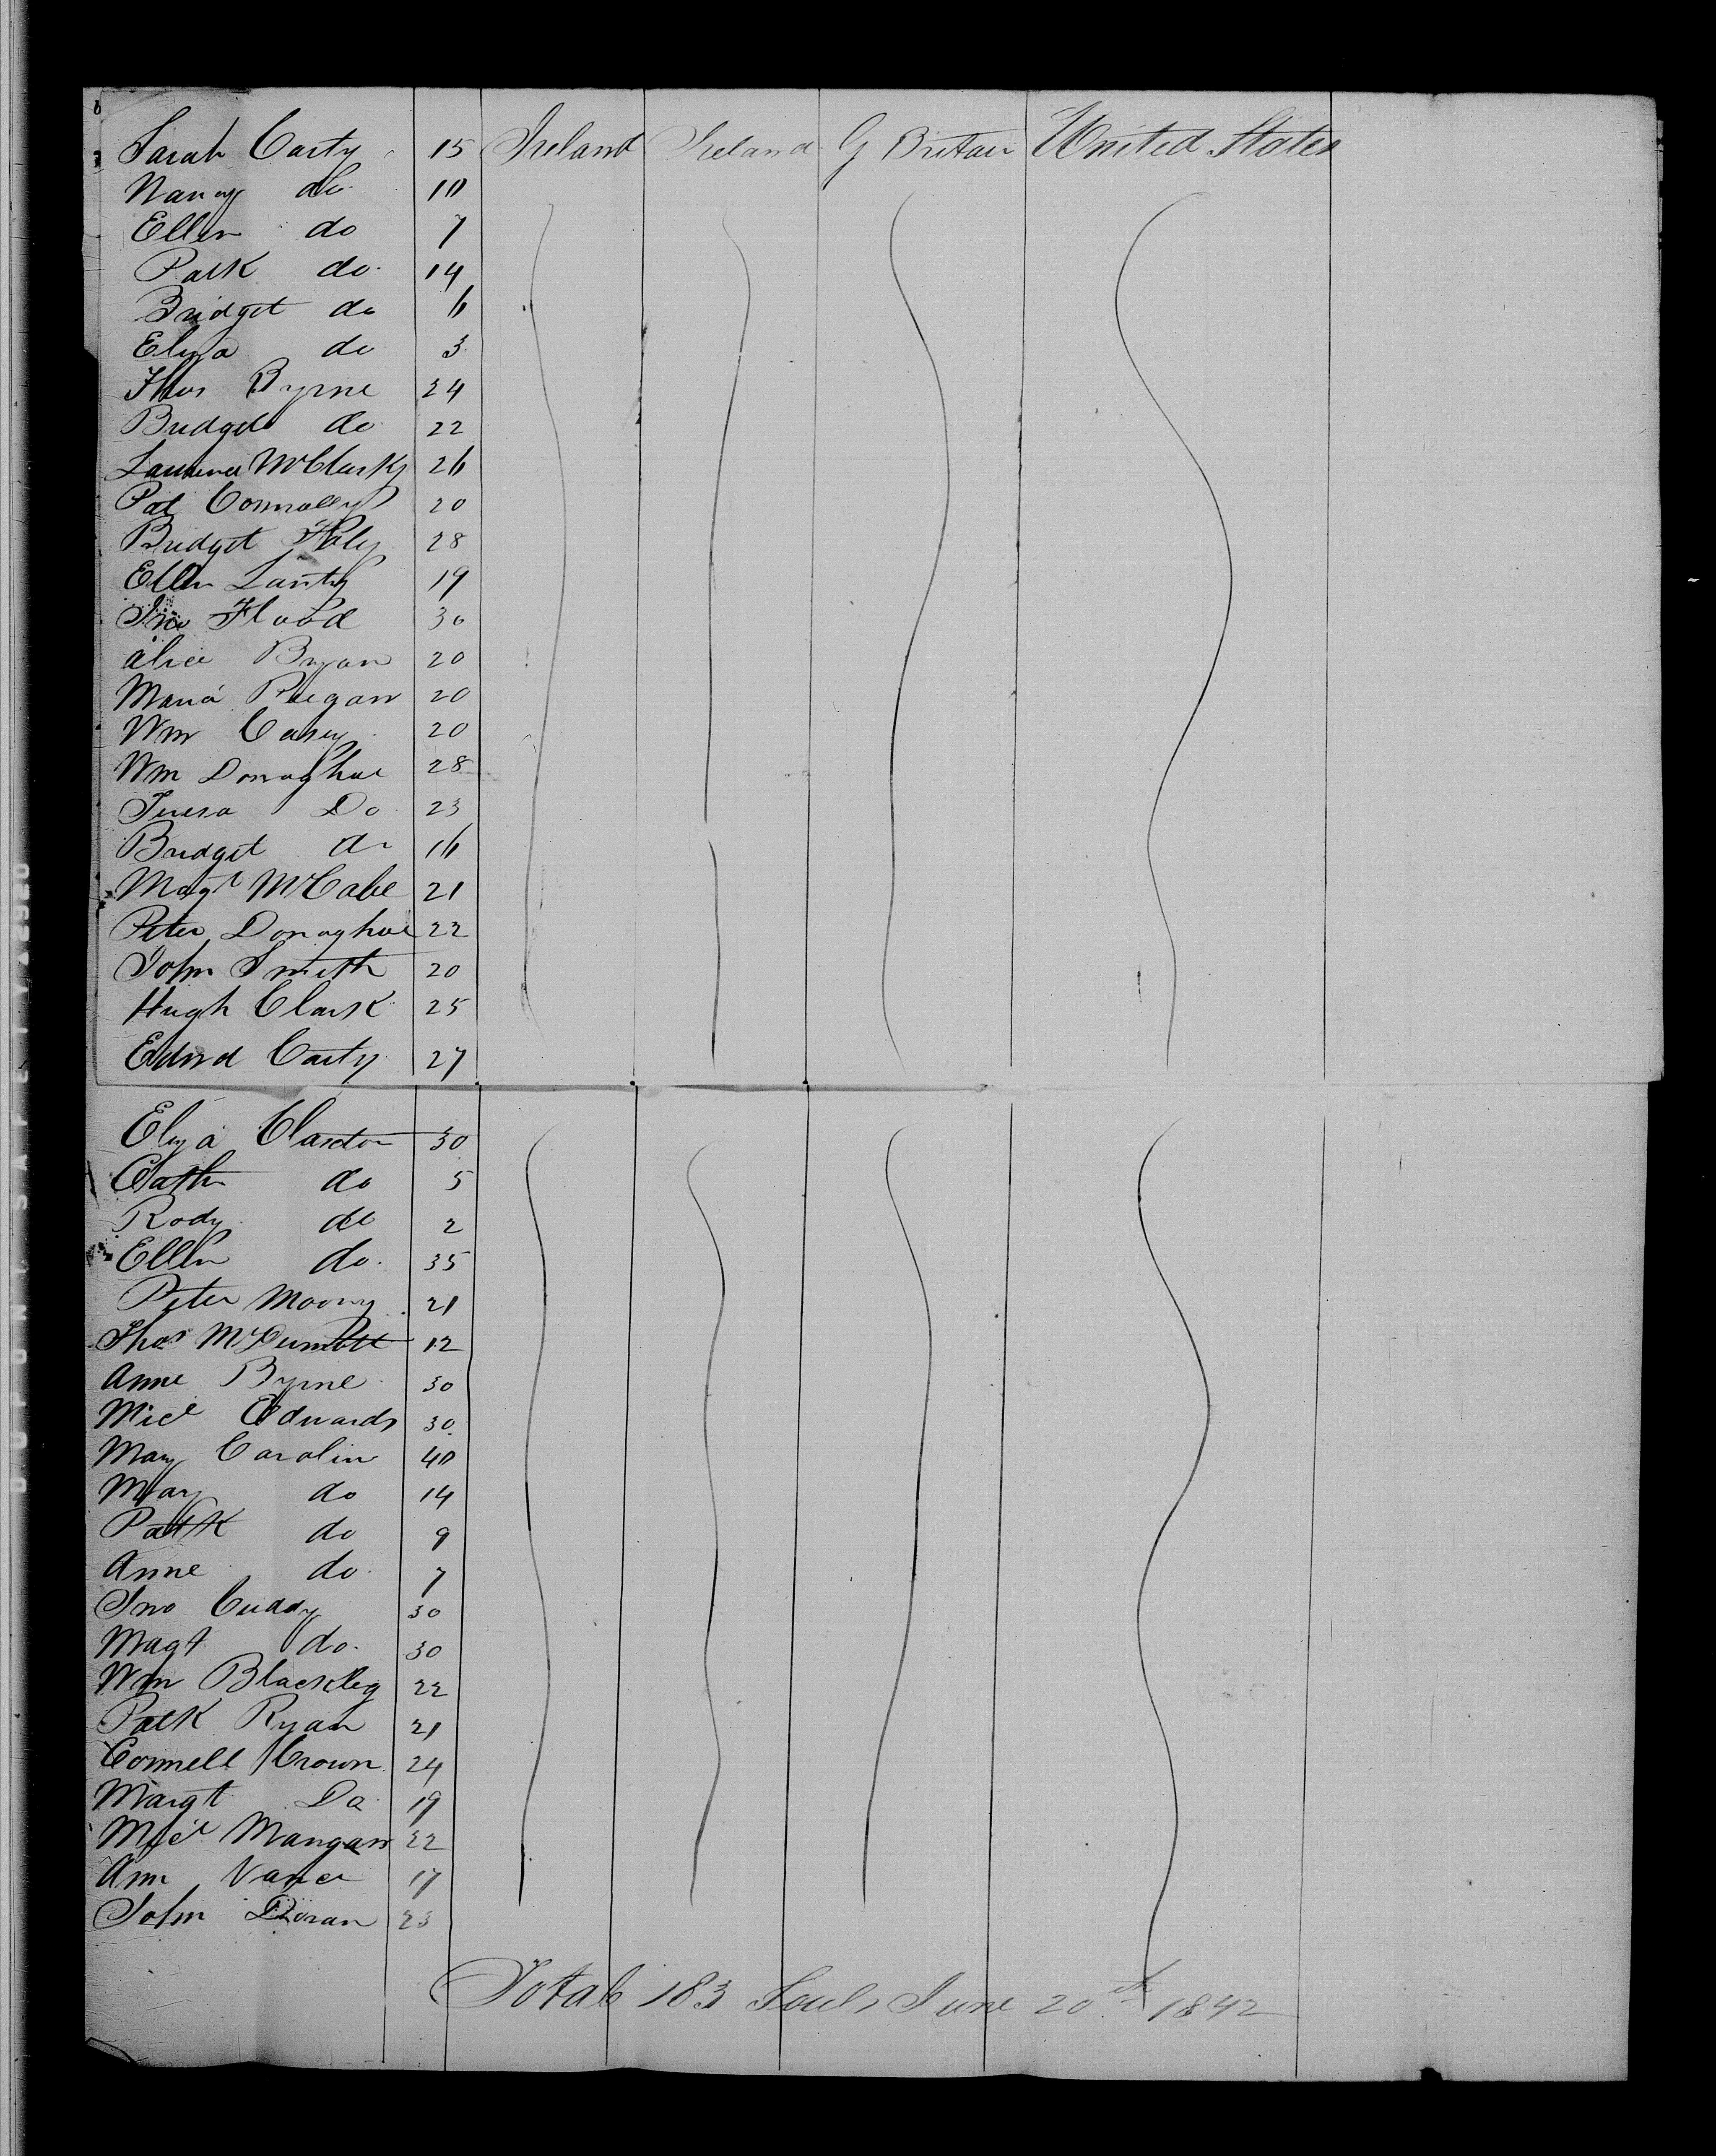 Sarah Carty 15 Ireland Ireland G Britain United States
Nancy do 10
Ellen do 7
Patk do 14
Bridget do 6
Eliza do 3
Thos Byrne 24
Bridget do 22
Laurence McClusky 26
Pat Connolly 20
Bridget Foley 28
Ellen 19
Jno Flood 30
Alice Bryan 20
Maria Reegan 20
Wm Casey 20
Wm Donaghue 28
Teresa Do 23
Bridget do 16
Magt McCabe 21
Peter Donaghue 22
John Smith 20
Hugh Clark 25
Edwd Carty 27
Eliza Claxton 30
Cath do 5
Rody do 2
Ellen do 35
Peter Moony 21
Thos McDermott 12
Anne Byrne 30
Micl Edwards 30
Mary Carolin 40
Mary do 14
Patk do 9
Anne do 7
Jno Cuddy 30
Magt do 30
Wm Blackley 22
Patk Ryan 21
Connell Crown 24
Margt Do 19
Micl Mangan 22
Ann Vance 17
John Doran 23
Total 183 Souls June 20th 1842